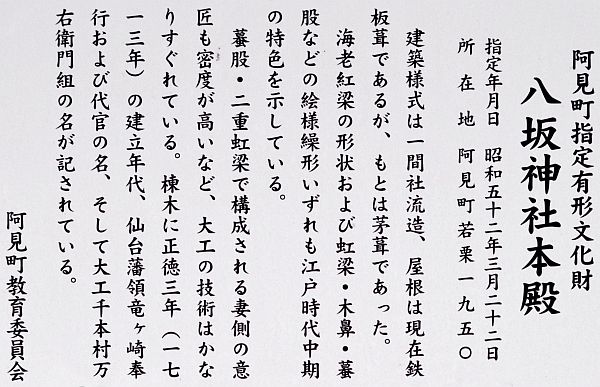 阿見町指定有形文化財
八坂神社本殿
指定年月日　昭和五十二年三月二十二日
所在地　阿見町若栗一九五〇
建築様式は一間社流造、屋根は現在鉄
板葺であるが、もとは茅葺であった。
海老紅梁の形状および虹梁・木鼻・蟇
股などの絵様繰形いずれも江戸時代中期
の特色を示している。
蟇股・二重虹梁で構成される妻側の意
匠も密度が高いなど、大工の技術はかな
りすぐれている。棟木に正徳三年（一七
一三年）の建立年代、仙台藩領竜ヶ崎奉
行および代官の名、そして大工千本村万
右衛門組の名が記されている。
阿見町教育委員会